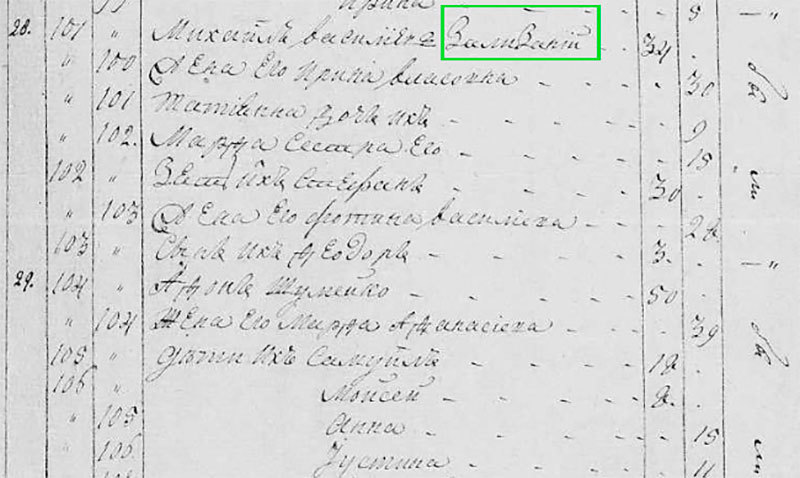 Ирина 8 — "
28. 101 " Михаилъ Василіевъ Заливаній 34
" 100 Жена Его Ирина Власовна 30
" 101 Татіанна дочь ихъ 9
" 102. Марфа Сестра Его 18
102 " Зять ихъ Стефанъ 30
" 103 Жена Его Фотина Василіева 28
103 " Сынъ ихъ Ѳеодоръ 3. — "
29. 104 " Шумейко 50
" 104 Жена Его Марфа Афанасіева 39
105 " Дѣти ихъ Самуилъ 18
106 " Моисей 8.
" 105 Анна 15
" 106 Іустина 11